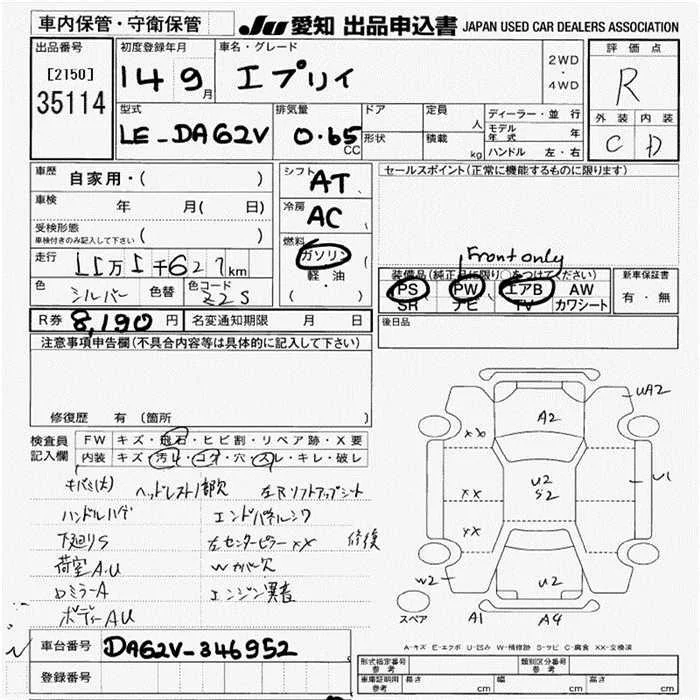 車内保管・守衛保管
JU 愛知 出品申込書 JAPAN USED CAR DEALERS ASSOCIATION
出品番号 初度登録年月 車名・グレード 評価点
[2150] 14 9月 エブリイ 2WD・4WD R
35114
型式 排気量 ドア 定員 人 ディーラー・並行 外装 内装
LE-DA62V 0.65 CC 形状 積載 kg モデル年式 年 C D
ハンドル 左・右
車歴 自家用・( ) シフト AT セールスポイント(正常に機能するものに限ります)
車検 年 月( 日) 冷房 AC
受検形態 車検付きのみ記入して下さい ( )
燃料 ガソリン 軽油 ( ・ )
走行 11万1千627km
Front only
装備品(純正品に限り○をつけてください) 新車保証書
色 シルバー 色替 色コード Z2S PS PW エアB AW 有・無
SR ナビ TV カワシート
R券 8,190円 名変通知期限 月 日 後日品
注意事項申告欄(不具合内容等は具体的に記入して下さい)
修復歴 有(箇所
検査員 FW キズ・飛石・ヒビ割・リペア跡・X要
記入欄 内装 キズ・汚レ・コゲ・穴・スレ・キレ・破レ
ヘッドレスト1部欠 左Rソフトアップシート
ハンドルハゲ エンドパネルシワ
下廻りS 左センターピラーXX 修復
荷室A.U Wカバー欠
ロミラーA エンジン異音
ボディーAU
UA2
A2
XX
U2
S2
U1
XX
XX
U2
W2
スペア
A1 A4
A-キズ E-エクボ U-凹み W-補修跡 S-サビ C-腐食 XX-交換済
車台番号 DA62V-346952
登録番号
形式指定番号 参考 類別区分番号 参考
車庫証明用 参考 長さ cm 幅 cm 高さ cm